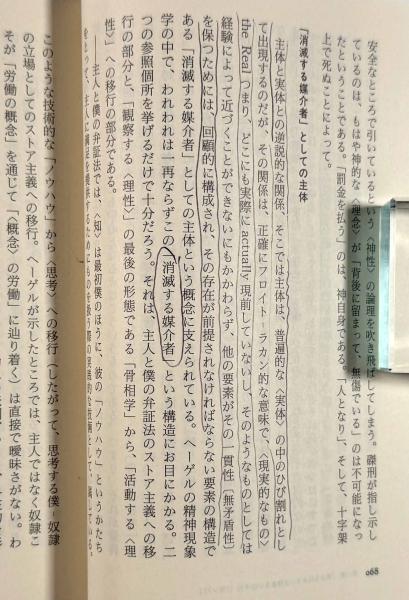 安全なところで引いているという〈神性〉の論理を吹き飛ばしてしまう。磔刑が指し示し
ているのは、もはや神的な〈理念〉が「背後に留まって、無傷でいる」のは不可能になっ
たということである。「罰金を払う」のは、神自身である。「人となり」、そして、十字架
上で死ぬことによって。
「消滅する媒介者」としての主体
主体と実体との逆説的な関係、そこでは主体は、普遍的な〈実体〉の中のひび割れとし
て出現するのだが、その関係は、正確にフロイト‐ラカン的な意味で、〈現実的なもの〉
the Real つまり、どこにも実際に actually 現前していないし、そのようなものとしては
経験によって近づくことができないにもかかわらず、他の要素がその一貫性〔無矛盾性〕
を保つためには、回顧的に構成され、その存在が前提されなければならない要素の構造で
ある「消滅する媒介者」としての主体という概念に支えられている。ヘーゲルの精神現象
学の中で、われわれは一再ならずこの「消滅する媒介者」という構造にお目にかかる。二
つの参照個所を挙げるだけで十分だろう。それは、主人と僕の弁証法のストア主義への移
行の部分と、「観察する〈理性〉」の最後の形態である「骨相学」から、「活動する〈理
性〉」への移行の部分である。
主人と僕の弁証法では、〈知〉は最初僕のほうに、彼の「ノウハウ」というかたち
このような技術的な「ノウハウ」から〈思考〉への移行（したがって、思考する僕‐奴隷
の立場としてのストア主義への移行。ヘーゲルが示したところでは、主人ではなく奴隷こ
そが「労働の概念」を通じて「〈概念〉の労働」に辿り着く）は直接で曖昧さがない。わ
068